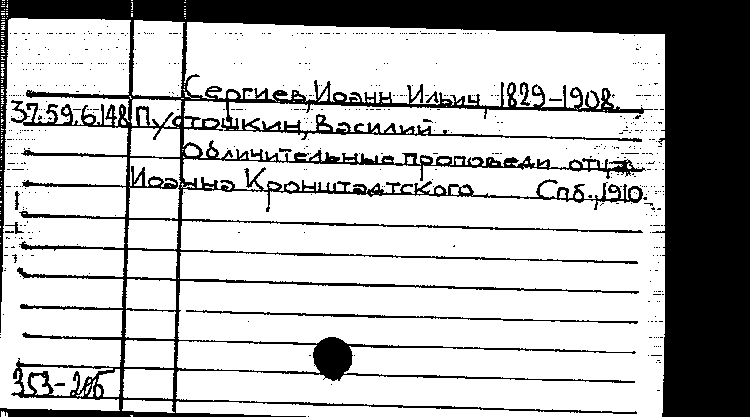 Сергиев, Иоанн Ильич, 1829-1908.
37.59.6.148 Пустошкин, Василий.
Обличительные проповеди отца
Иоанна Кронштадтского Спб., 1910.
353-205